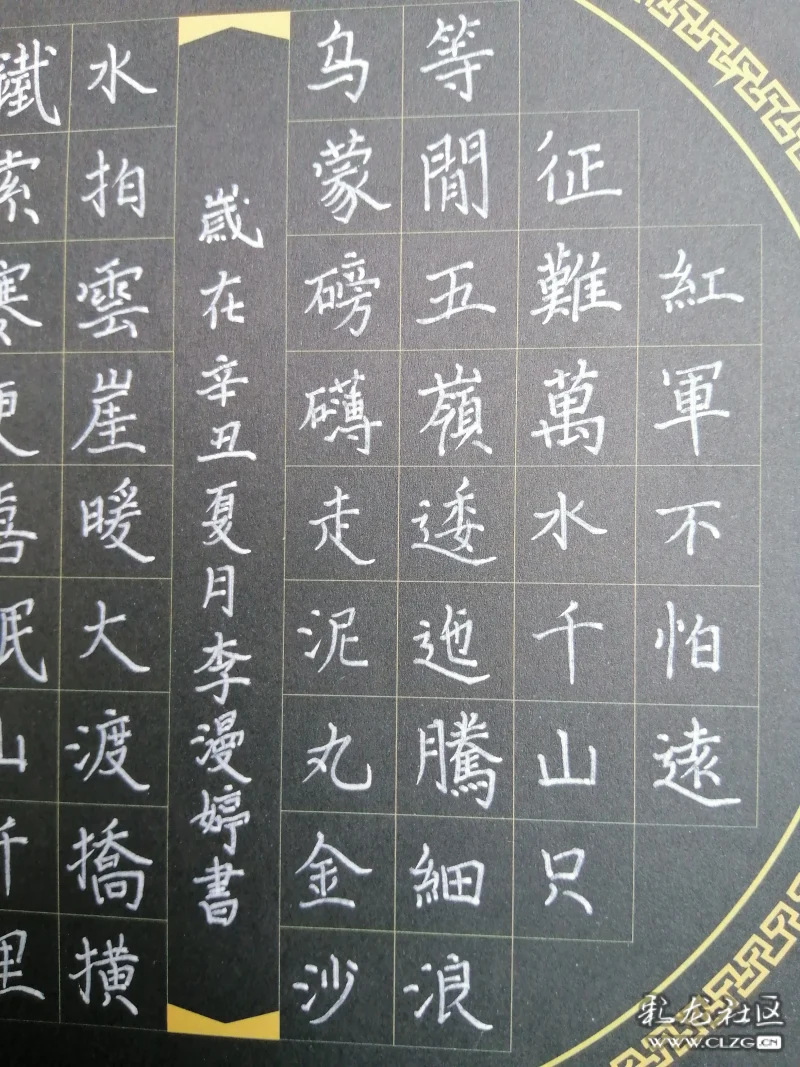 紅軍不怕遠
征難萬水千山只
等閒五嶺逶迤騰細浪
乌蒙磅礴走泥丸金沙
歲在辛丑夏月李漫婷書
水拍雲崖暖大渡橋橫
鐵索寒更喜岷山千里
彩龙社区
www.CLZG.CN